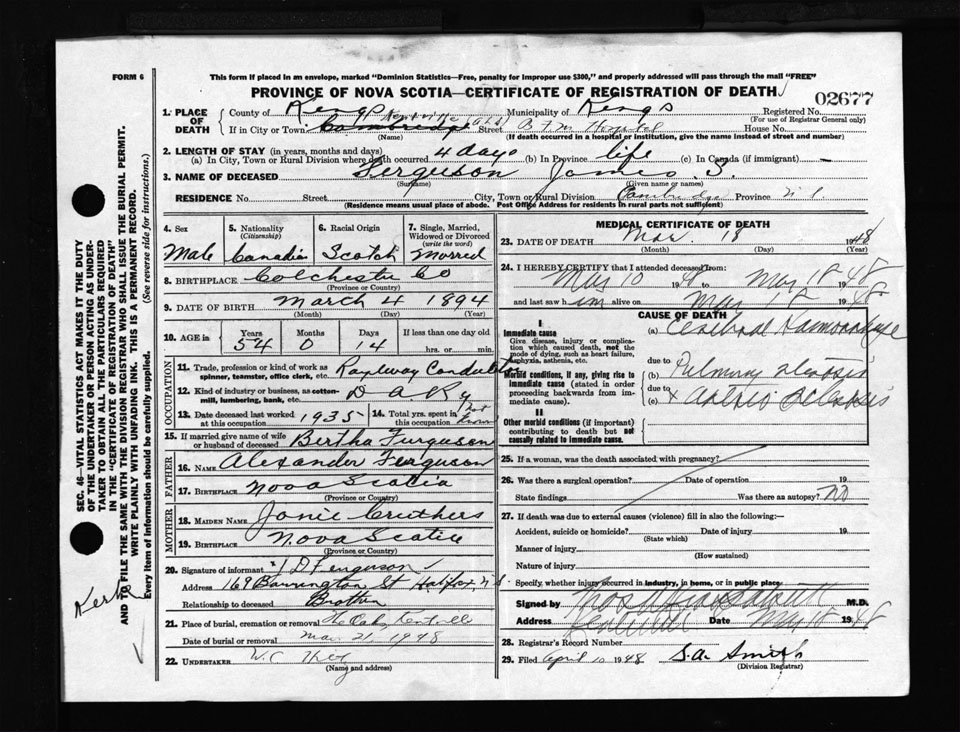 FORM 6
This form if placed in an envelope, marked "Dominion Statistics—Free, penalty for improper use $300," and properly addressed will pass through the mail "FREE"
PROVINCE OF NOVA SCOTIA—CERTIFICATE OF REGISTRATION OF DEATH
02677
1. PLACE OF DEATH County of Kings Municipality of Kings Registered No.
(For use of Registrar General only)
If in City or Town Cambridge Street Hospital House No.
(Name) (If death occurred in a hospital or institution, give the name instead of street and number)
2. LENGTH OF STAY (in years, months and days)
(a) In City, Town or Rural Division where death occurred 4 days (b) In Province life (c) In Canada (if immigrant) —
3. NAME OF DECEASED Ferguson James S.
(Surname) (Given name or names)
RESIDENCE No. Street City, Town or Rural Division Cambridge Province N.S.
(Residence means usual place of abode. Post Office Address for residents in rural parts not sufficient)
4. Sex Male
5. Nationality (Citizenship) Canadian
6. Racial Origin Scotch
7. Single, Married, Widowed or Divorced (write the word) Married
8. BIRTHPLACE Colchester Co
(Province or Country)
9. DATE OF BIRTH March 4 1894
(Month) (Day) (Year)
10. AGE in Years 54 Months 0 Days 14 If less than one day old
hrs. or min.
OCCUPATION
11. Trade, profession or kind of work as spinner, teamster, office clerk, etc. Railway Conductor
12. Kind of industry or business, as cotton-mill, lumbering, bank, etc. D A Ry
13. Date deceased last worked at this occupation 1935 14. Total yrs. spent in this occupation Not Known
15. If married give name of wife or husband of deceased Bertha Furguson
FATHER
16. NAME Alexander Furguson
17. BIRTHPLACE Nova Scotia
(Province or Country)
MOTHER
18. MAIDEN NAME Janie Cruthers
19. BIRTHPLACE Nova Scotia
(Province or Country)
20. Signature of informant D Ferguson
Address 169 Barrington St Halifax, N.S.
Relationship to deceased Brother
21. Place of burial, cremation or removal The Oaks, Kentville
Date of burial or removal Mar 21, 1948
22. UNDERTAKER W.C
(Name and address)
MEDICAL CERTIFICATE OF DEATH
23. DATE OF DEATH Mar. 18 1948
(Month) (Day) (Year)
24. I HEREBY CERTIFY that I attended deceased from:
Mar 10 1948 to Mar 18 1948
and last saw him alive on Mar 18 1948
CAUSE OF DEATH
I
Immediate cause
Give disease, injury or complication which caused death, not the mode of dying, such as heart failure, asphyxia, asthenia, etc.
(a) Cerebral Haemorrhage
due to
Morbid conditions, if any, giving rise to immediate cause (stated in order proceeding backwards from immediate cause).
(b) Pulmonary stenosis
due to
(c) + Arterio Sclerosis
II
Other morbid conditions (if important) contributing to death but not causally related to immediate cause.
25. If a woman, was the death associated with pregnancy?
26. Was there a surgical operation? Date of operation 19
State findings Was there autopsy? No
27. If death was due to external causes (violence) fill in also the following:—
Accident, suicide or homicide? Date of injury 19
(State which)
Manner of injury
(How sustained)
Nature of injury
Specify, whether injury occurred in industry, in home, or in public place.
Signed by M.D.
Address Kentville Date Mar 18 1948
28. Registrar's Record Number
29. Filed April 10 1948 S.A. Smith
(Division Registrar)
SEC. 46—VITAL STATISTICS ACT MAKES IT THE DUTY
OF THE UNDERTAKER OR PERSON ACTING AS UNDER-
TAKER TO OBTAIN ALL THE PARTICULARS REQUIRED
IN THE "CERTIFICATE OF REGISTRATION OF DEATH"
AND TO FILE THE SAME WITH THE DIVISION REGISTRAR WHO SHALL ISSUE THE BURIAL PERMIT.
WRITE PLAINLY WITH UNFADING INK. THIS IS A PERMANENT RECORD.
Every item of information should be carefully supplied. (See reverse side for instructions.)